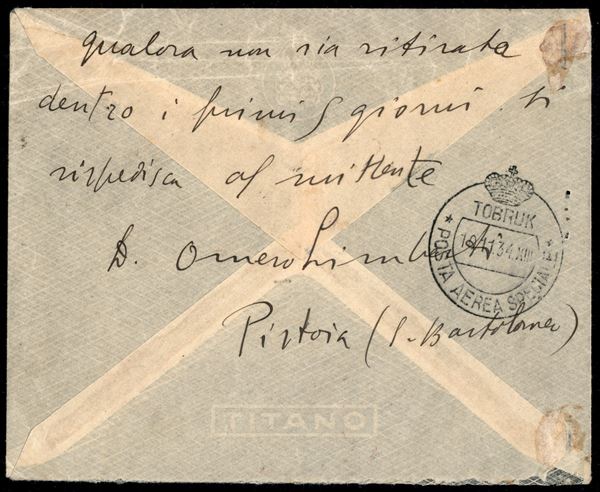 qualora non sia ritirata
dentro i primi 5 giorni si
rispedisca al mittente
D. Omero
Pistoia (S. Bartolomeo)
TOBRUK
11.34.XIII
* POSTA AEREA SPECIALE *
TITANO